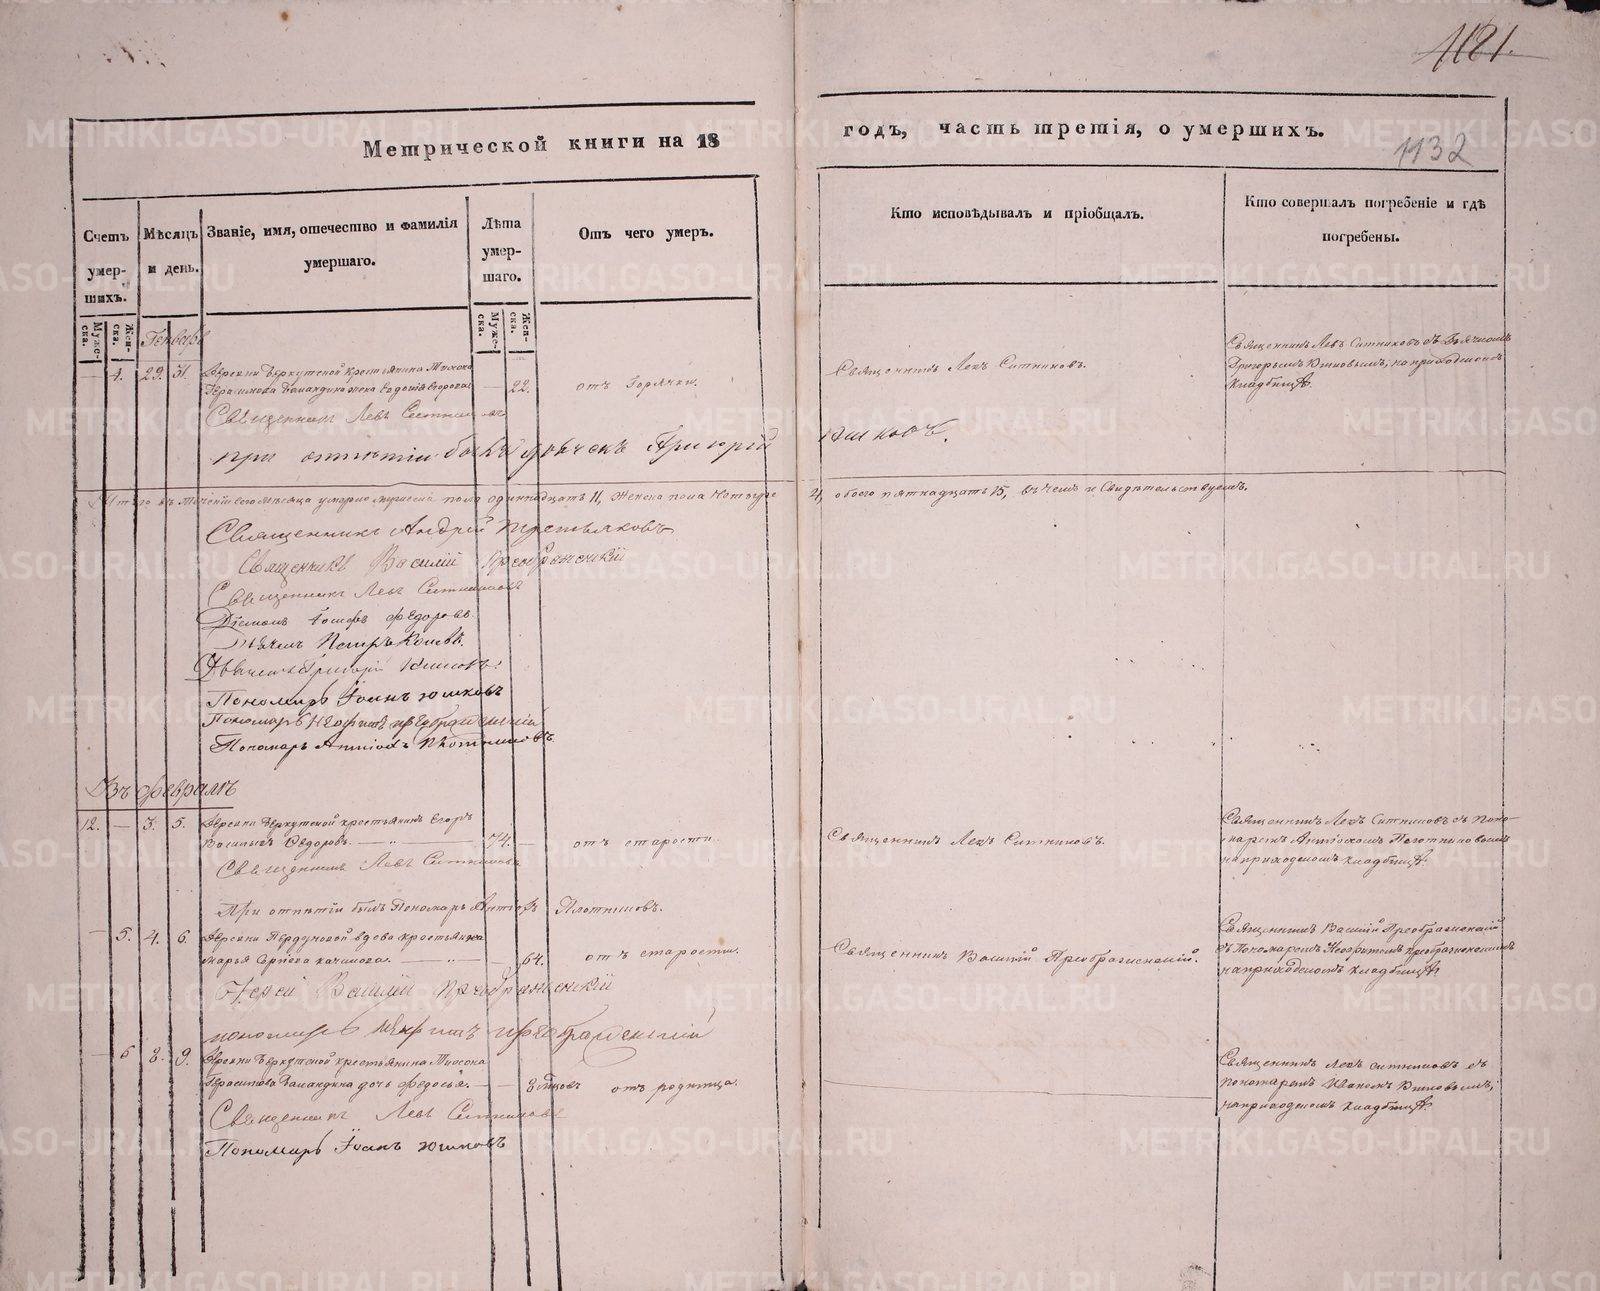 1181.
1132
Метрической книги на 18 годъ, часть третія, о умершихъ.
Счетъ умер-шихъ.
Мѣсяцъ и день.
Званіе, имя, отечество и фамилія умершаго.
Лѣта умер-шаго.
Отъ чего умеръ.
Кто исповѣдывалъ и пріобщалъ.
Кто совершалъ погребеніе и гдѣ погребены.
Муже-ска.
Жен-ска.
Муже-ска.
Жен-ска.
Генварь
4. 29. 31. Деревни крестьянина
жена 22. отъ Горячки.
Священникъ Левъ Ситниковъ.
Священникъ Левъ Ситниковъ съ Дьячкомъ
Григорьемъ на приходскомъ
кладбищѣ.
Священникъ Левъ Ситниковъ
при отпѣтіи былъ дьячекъ Григорій Юшковъ.
Итого въ теченіи сего мѣсяца умерло мужеска пола одиннадцать 11, женска пола четыре 4, обоего пятнадцать 15, въ чемъ и свидѣтельствуемъ.
Священникъ Андрей Третьяковъ
Священникъ Василий Преображенскій
Священникъ Левъ Ситниковъ
Діаконъ Іосифъ Федоровъ
Дьячекъ Петръ
Дьячекъ Григорій Юшковъ
Пономарь Іоаннъ Юшковъ
Пономарь Неофитъ Преображенскій
Пономарь Антіохъ Плотниковъ
Въ Февралѣ
12. 3. 5. Деревни крестьянинъ Егоръ
Васильевъ Федоровъ. 74. отъ старости.
Священникъ Левъ Ситниковъ.
Священникъ Левъ Ситниковъ съ Поно-
маремъ Антіохомъ Плотниковымъ
на приходскомъ кладбищѣ.
Священникъ Левъ Ситниковъ
При отпѣтіи былъ Пономарь Антіохъ Плотниковъ.
5. 4. 6. Деревни вдова крестьянка
Марья 64. отъ старости.
Священникъ Василій Преображенскій.
Священникъ Василій Преображенскій
съ Пономаремъ Неофитомъ Преображенскимъ
на приходскомъ кладбищѣ
Іерей Василий Преображенскій
пономарь Неофитъ Преображенскій
6 8. 9. Деревни крестьянина
дочь Федосья. 8 мѣсцовъ отъ родимца.
Священникъ Левъ Ситниковъ съ
пономаремъ Иваномъ Юшковымъ,
на приходскомъ кладбищѣ.
Священникъ Левъ Ситниковъ
Пономарь Іоаннъ Юшковъ
METRIKI.GASO-URAL.RU